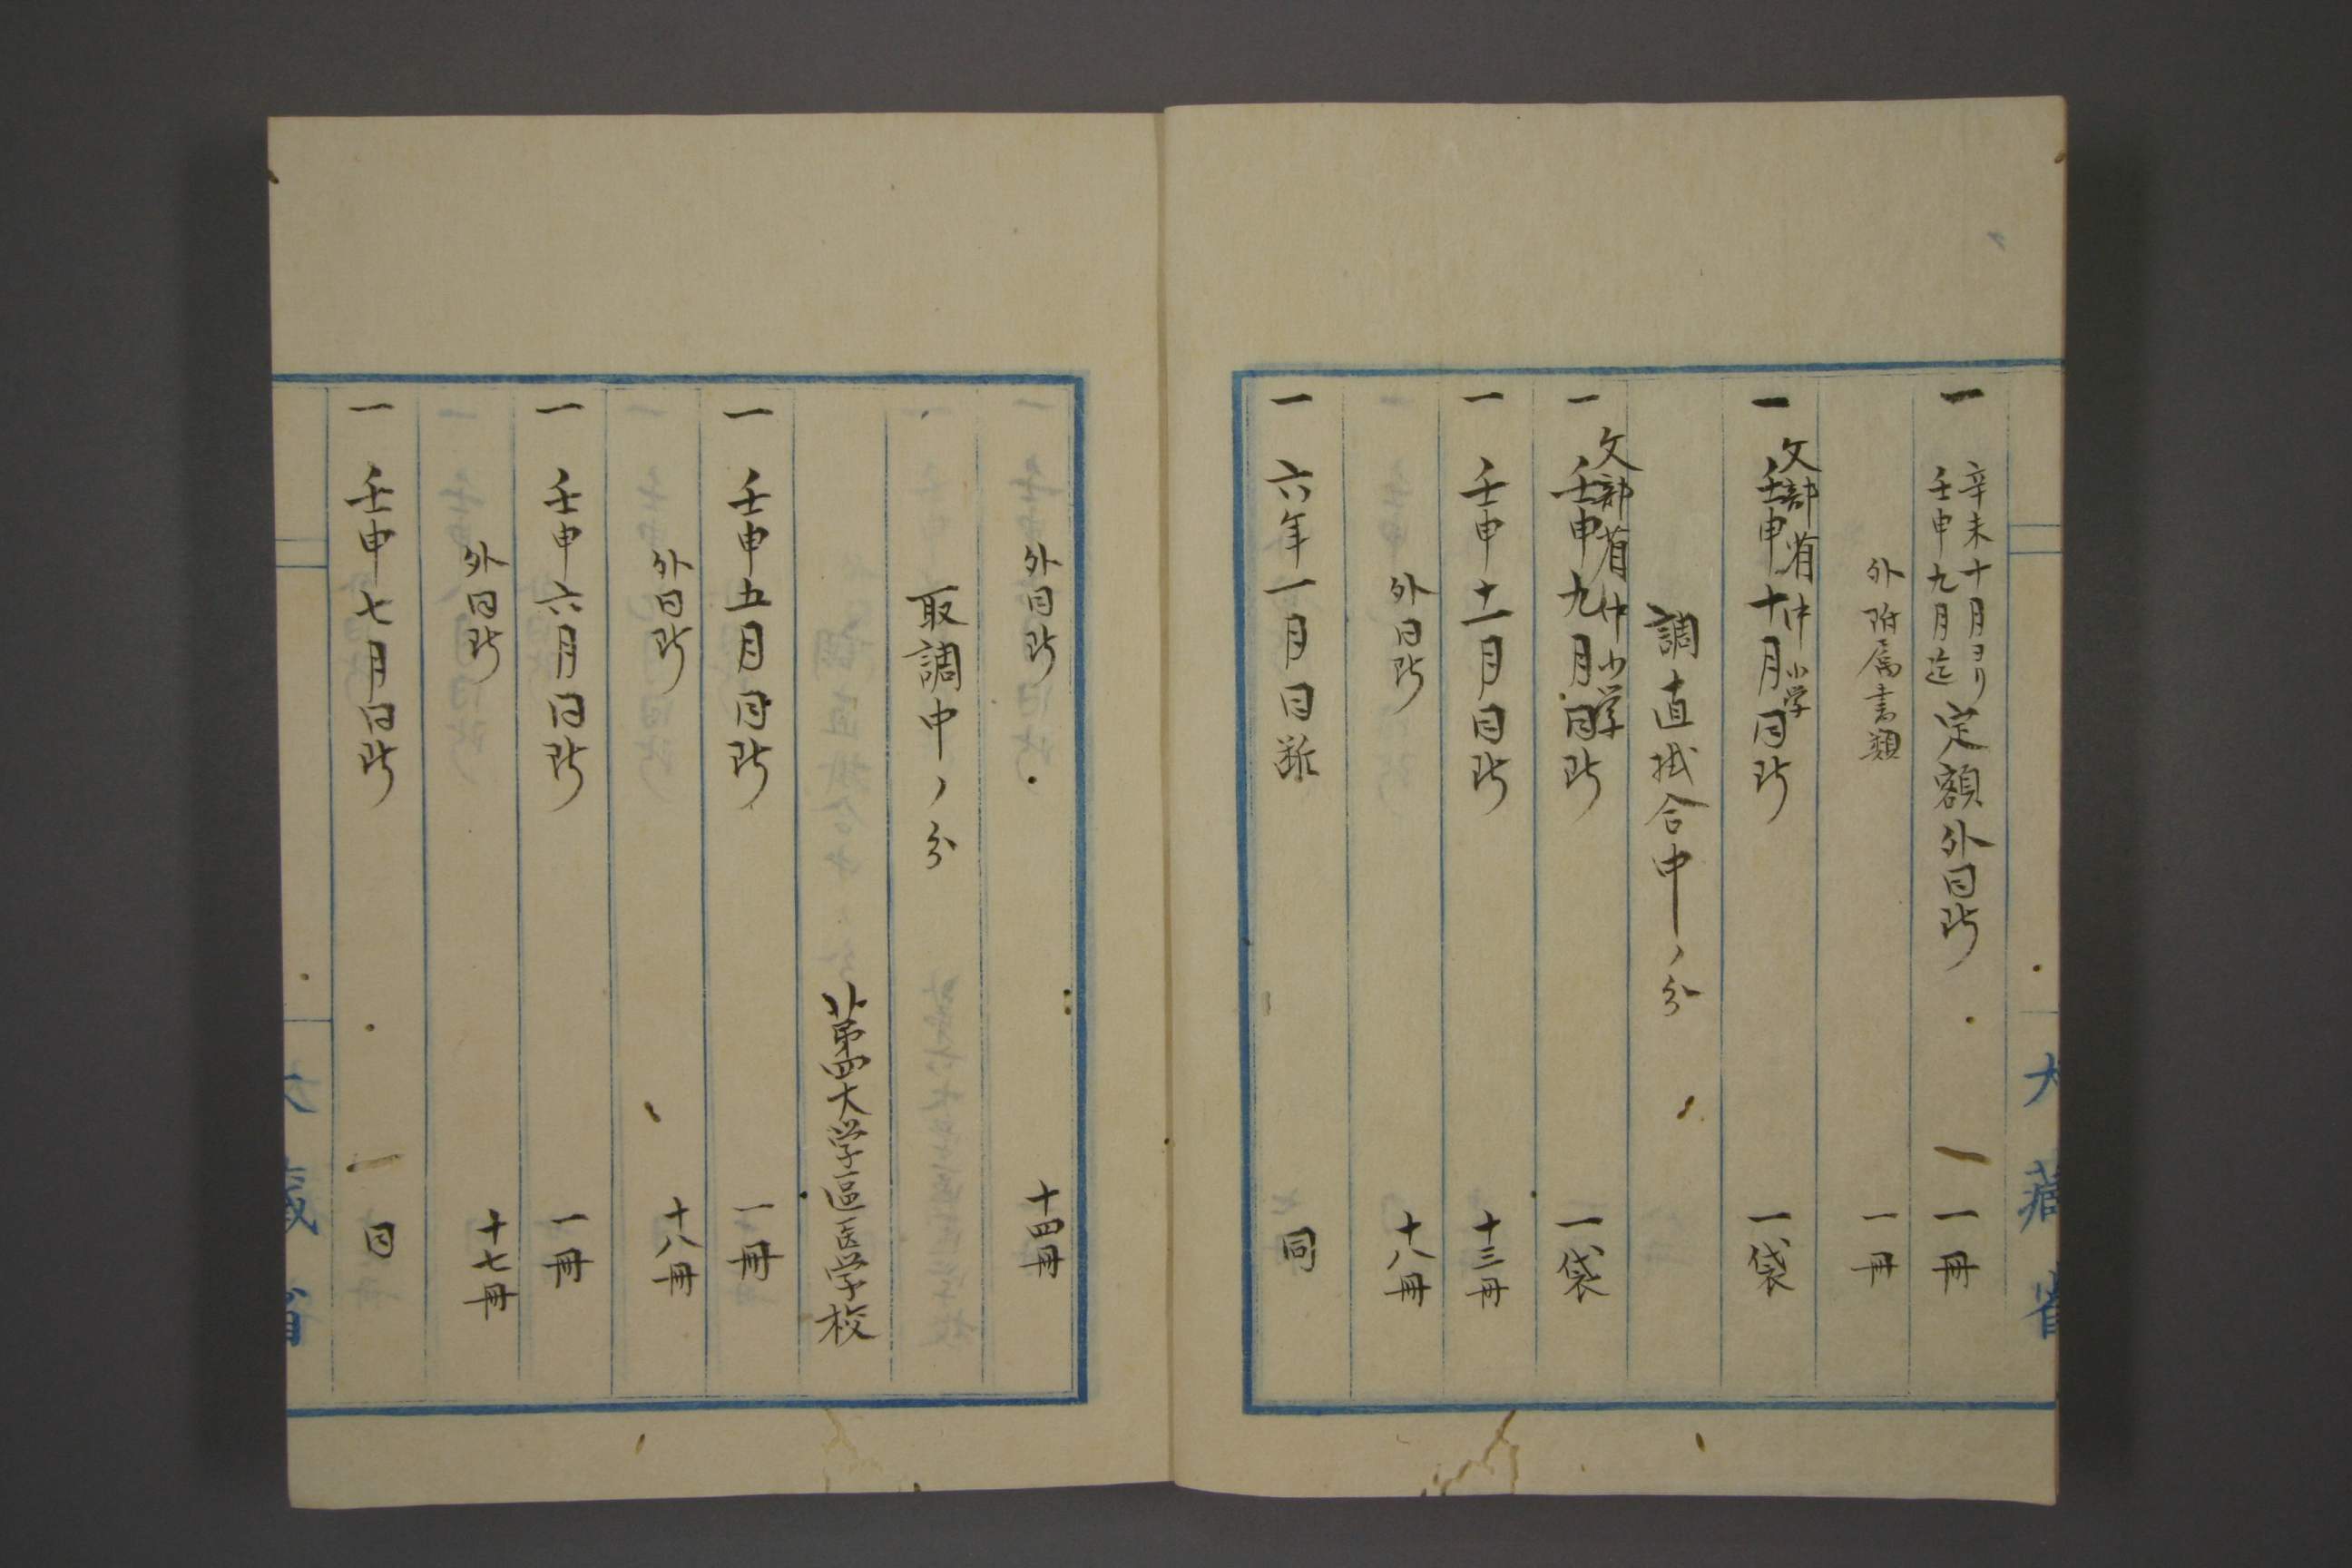 大藏省
一 辛未十月ヨリ壬申九月迄 定額外同断 一冊
外附属書類 一冊
文部省中小学
一 壬申十月同断 一袋
調直掛合中ノ分
文部省中小学
一 壬申九月同断 一袋
一 壬申十一月同断 十三冊
外同断 十八冊
一 六年一月同断 同
外同断 十四冊
取調中ノ分
第四大学區医学校
一 壬申五月同断 一冊
外同断 十八冊
一 壬申六月同断 一冊
外同断 十七冊
一 壬申七月同断 一同
大藏省